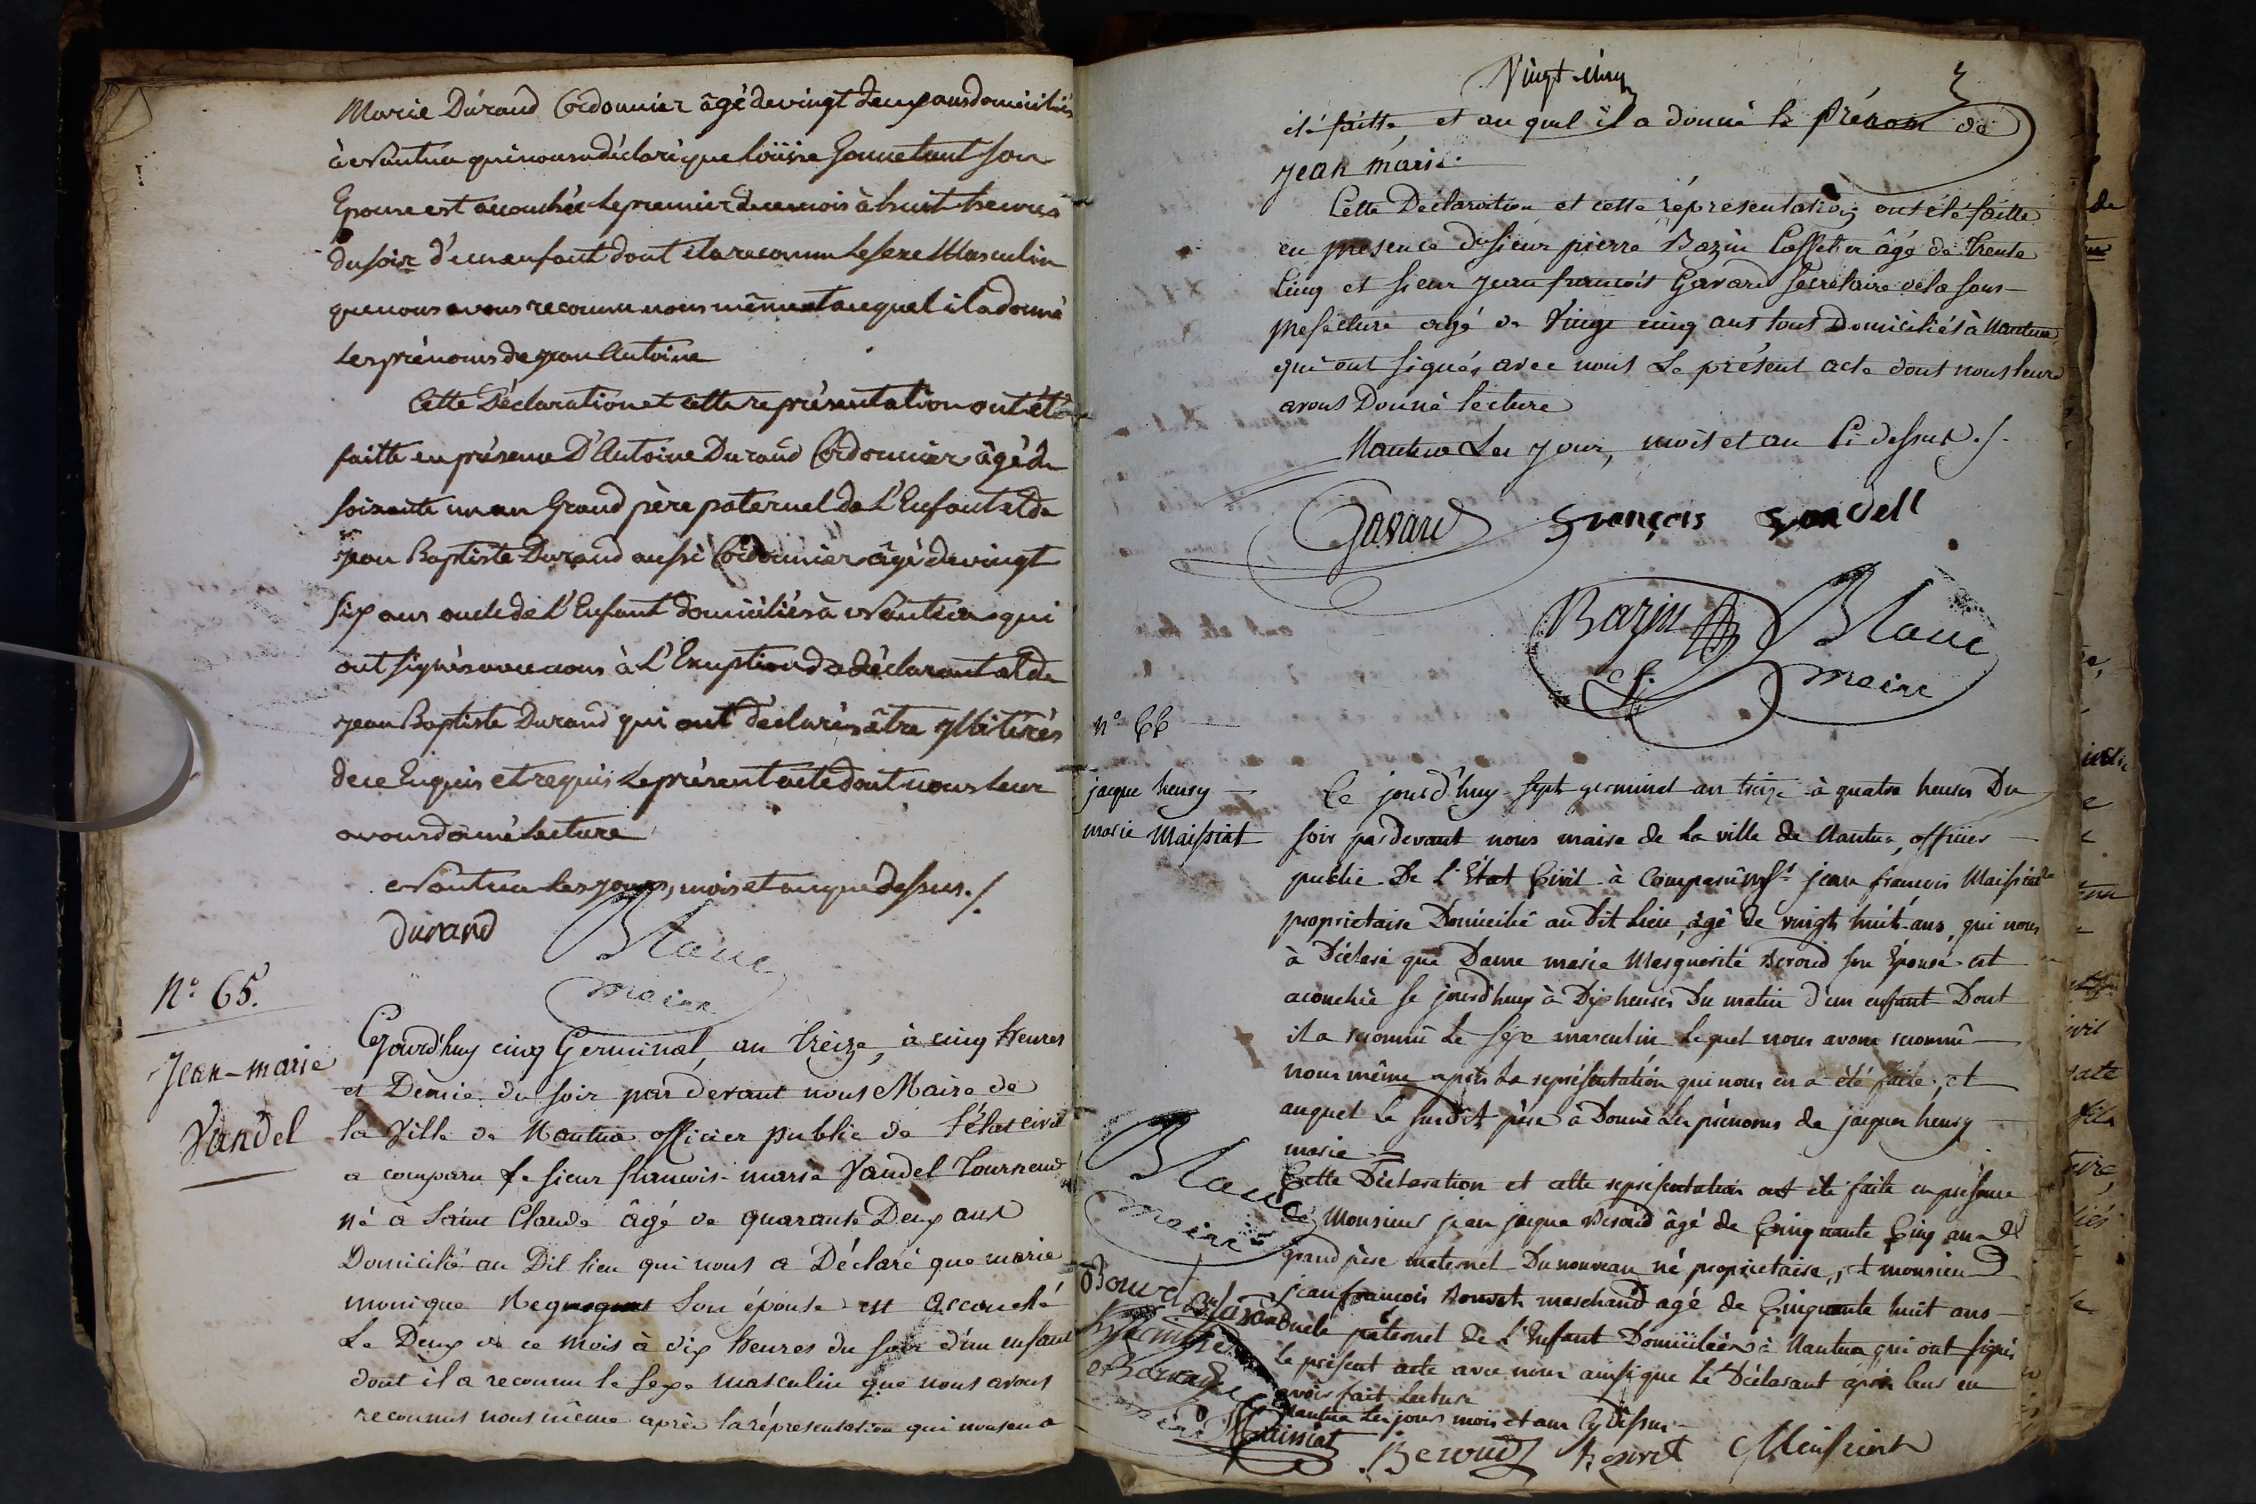 Marie Durand Cordonnier âgé de vingt deux ans domicilié
à Nantua qui nous a déclaré que Loüise son
Epouse est accouchée le premier de ce mois à huit heures
du soir d'un enfant dont il a reconnu le sexe Masculin
que nous avons reconnu nous même et auquel il a donné
les prénoms de jean Antoine
Cette Déclaration et cette représentation ont été
faitte en présence D'Antoine Durand Cordonnier âgé de
soixante un an Grand père paternel de L'Enfant et de
jean Baptiste Durand aussi Cordonnier âgé de vingt
six ans oncle de L'Enfant domiciliés à Nantua qui
ont signés avec nous à L'Exeption du déclarant et de
jean Baptiste Durand qui ont déclarés être illitérés
de ce Enquis et requis le présent acte dont nous leur
avons donné lecture
Nantua les jours, mois et an que dessus ./.
Durand Blanc
maire
N° 65.
Jean-marie
Vandel
Cejourd'huy cinq Germinal, an treize, à cinq heures
et Demie du soir par devant nous Maire de
la Ville de Nantua officier public de l'état civil
a comparu le sieur francois-marie Vandel Tourneur
né à Saint Claude âgé de quarante Deux ans
Domicilié au Dit lieu qui nous a Déclaré que marie
monique son épouse est accouché
Le Deux de ce mois à dix heures du soir d'un enfant
dont il a reconnu le sexe masculin que nous avons
reconnus nous même après la réprésentation qui nous en a
Vingt-cinq
été faitte, et au quel il a donné le prénom de
jean marie.
Cette Déclaration et cette représentation ont été faitte
en présence du sieur pierre Bazin Caffetier âgé de trente
cinq et sieur jean francois Gavard secrétaire de la sous-
prefecture agé de Vingt cinq ans tous Domiciliés à Nantua
qui ont signés avec nous Le présent acte dont nous leur
avons Donné lecture
Nantua Les jour, mois et an Ci dessus ./.
Gavard François Vandell
Bazin Blanc
maire
n° 66
jacque henry
marie Maissiat
Ce jourd'huy sept germinal an treize à quatre heures Du
soir pardevant nous maire de la ville de Nantua, officier
public De l'Etat Civil à Comparû Mr jean francois Maissiat
proprietaire Domicilié au Dit Lieu, âgé de vingt huit ans, qui nous
à Déclaré que Dame marie Marguerite Beroud son Epouse est
acouchée ce jourd'huy à Dix heures Du matin d'un enfant Dont
il a reconnû Le sexe masculin Lequel nous avons reconnû
nous même après La représentation qui nous en a été faite, et
auquel Le susdit père à Donné Les prénoms de jacque henry
marie
Cette Déclaration et cette représentation ont été faite en présence
de Monsieur jean jacque Beroud âgé de Cinquante Cinq ans
grand père maternel Du nouveau né propriétaire, et monsieur
jean francois Bouvet marchand agé de Cinquante huit ans
oncle paternel de L'Enfant Domiciliés à Nantua qui ont signés
le présent acte avec nous ainsi que Le Déclarant après leur en
avoir fait Lecture
Nantua les jours mois et an Cy Dessus
Blanc
maire
Maissiat Beroud Bouvet Maissiat